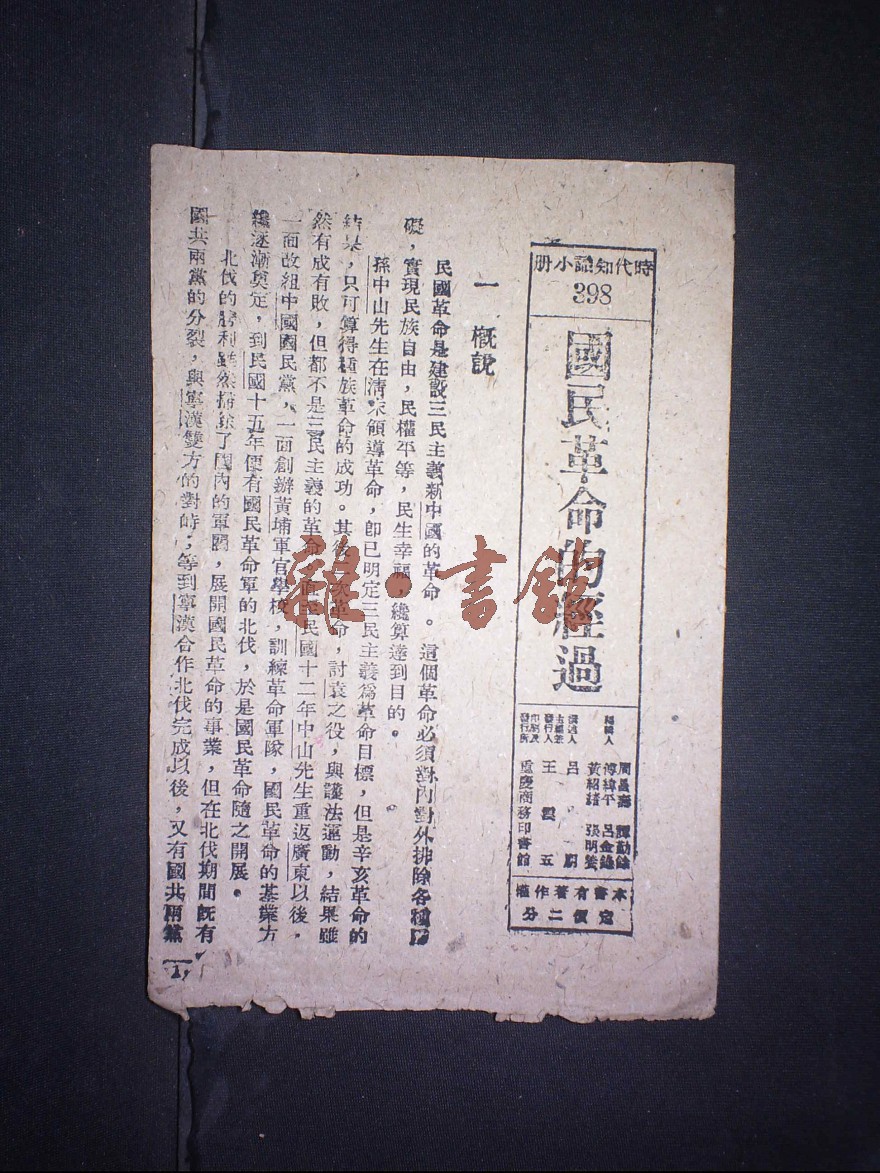 時代知識小册
398
國民革命的經過
編輯人
周昌壽 譚勤餘
傅緯平 呂金錄
黃紹緒 張明養
編述人 呂
主編兼發行人 王雲五
印刷及發行所 重慶商務印書館
本書有著作權
定價二分
一 概說
民國革命是建設三民主義新中國的革命。這個革命必須對內對外排除各種障
礙，實現民族自由，民權平等，民生幸福，纔算達到目的。
孫中山先生在清末領導革命，卽已明定三民主義爲革命目標，但是辛亥革命的
結果，只可算得種族革命的成功。其後 次革命，討袁之役，與護法運動，結果雖
然有成有敗，但都不是三民主義的革命 民國十二年中山先生重返廣東以後，
一面改組中國國民黨，一面創辦黃埔軍官學校，訓練革命軍隊，國民革命的基業方
纔逐漸奠定，到民國十五年便有國民革命軍的北伐，於是國民革命隨之開展。
北伐的勝利雖然掃除了國內的軍閥，展開國民革命的事業，但在北伐期間旣有
國共兩黨的分裂，與寧漢雙方的對峙；等到寧漢合作北伐完成以後，又有國共兩黨
1
雜·書館